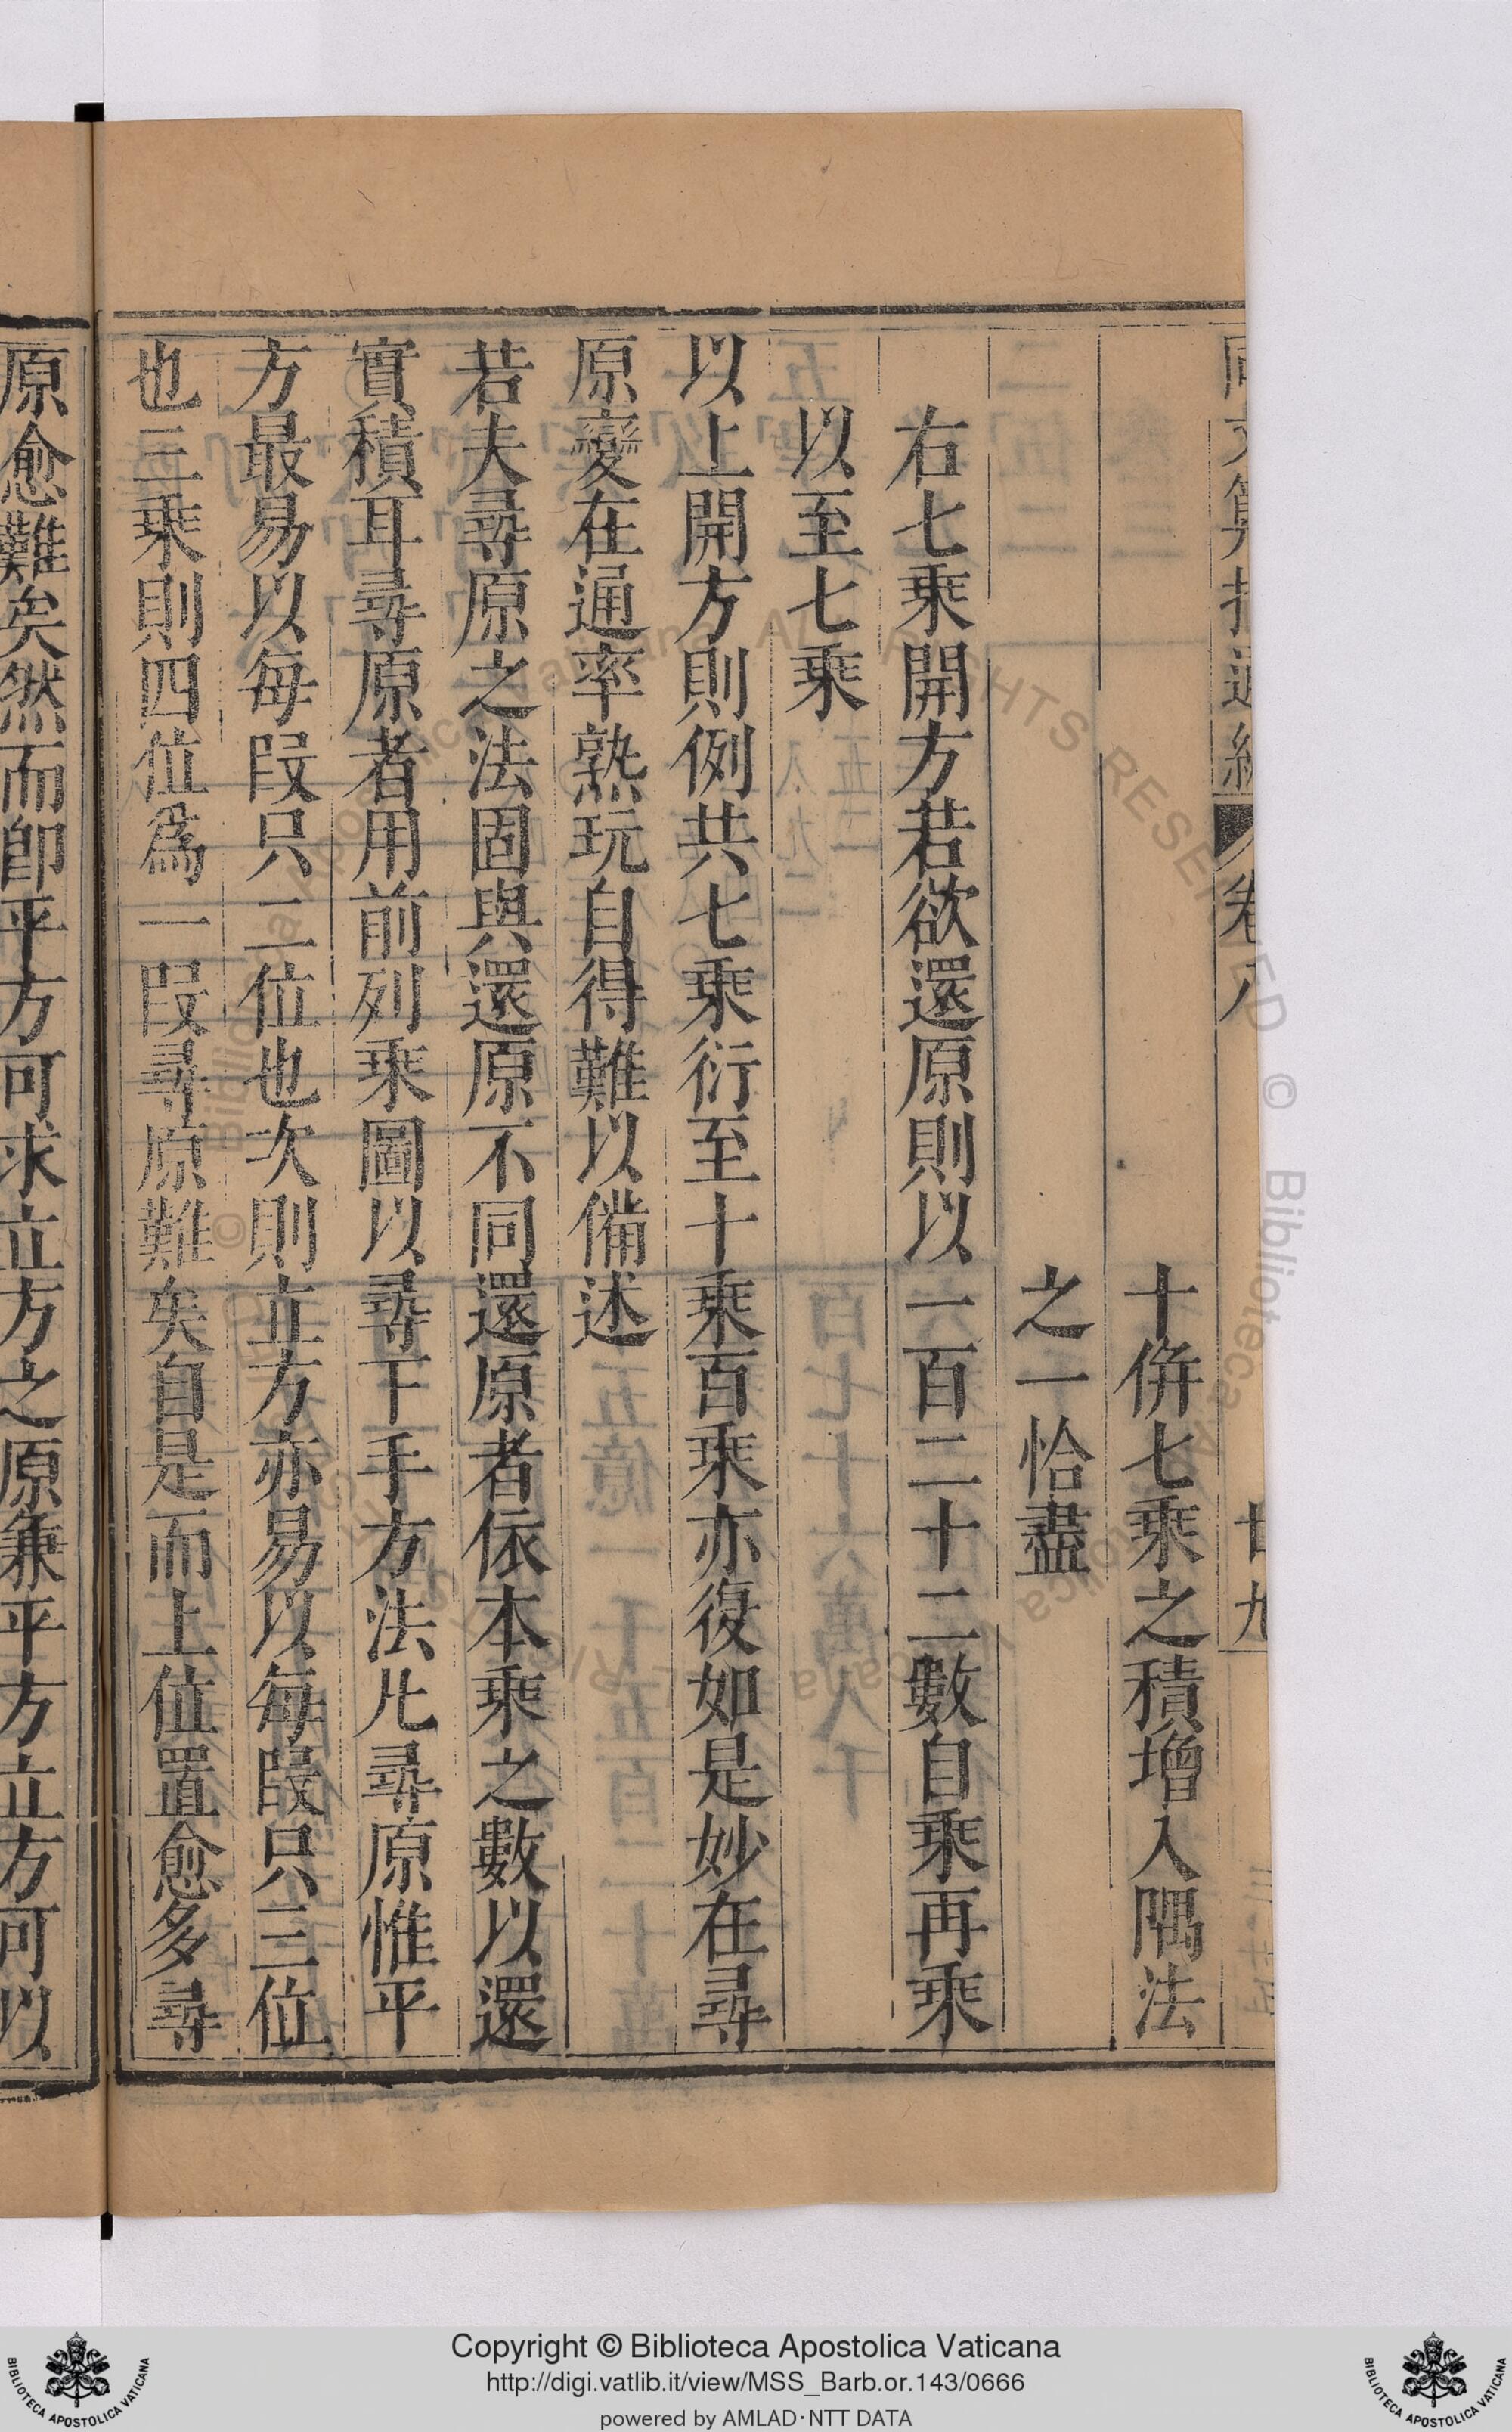 十併七乘之積增入隅法
之一恰盡
右七乘開方若欲還原則以一百二十二數自乘再乘
以至七乘
以上開方則例共七乘衍至十乘百乘亦復如是妙在尋
原變在通率熟玩自得難以備述
若夫尋原之法固與還原不同還原者依本乘之數以還
實積耳尋原者用前列乘圖以尋下手方法凡尋原惟平
方最易以每段只二位也次則立方亦易以每段只三位
也三乘則四位爲一段尋原難矣自是而上位置愈多尋
原愈難矣然而卽平方可求立方之原兼平方立方可以
卷八
廿九
Copyright © Biblioteca Apostolica Vaticana
http://digi.vatlib.it/view/MSS_Barb.or.143/0666
powered by AMLAD·NTT DATA
BIBLIOTECA APOSTOLICA VATICANA
BIBLIOTECA APOSTOLICA VATICANA